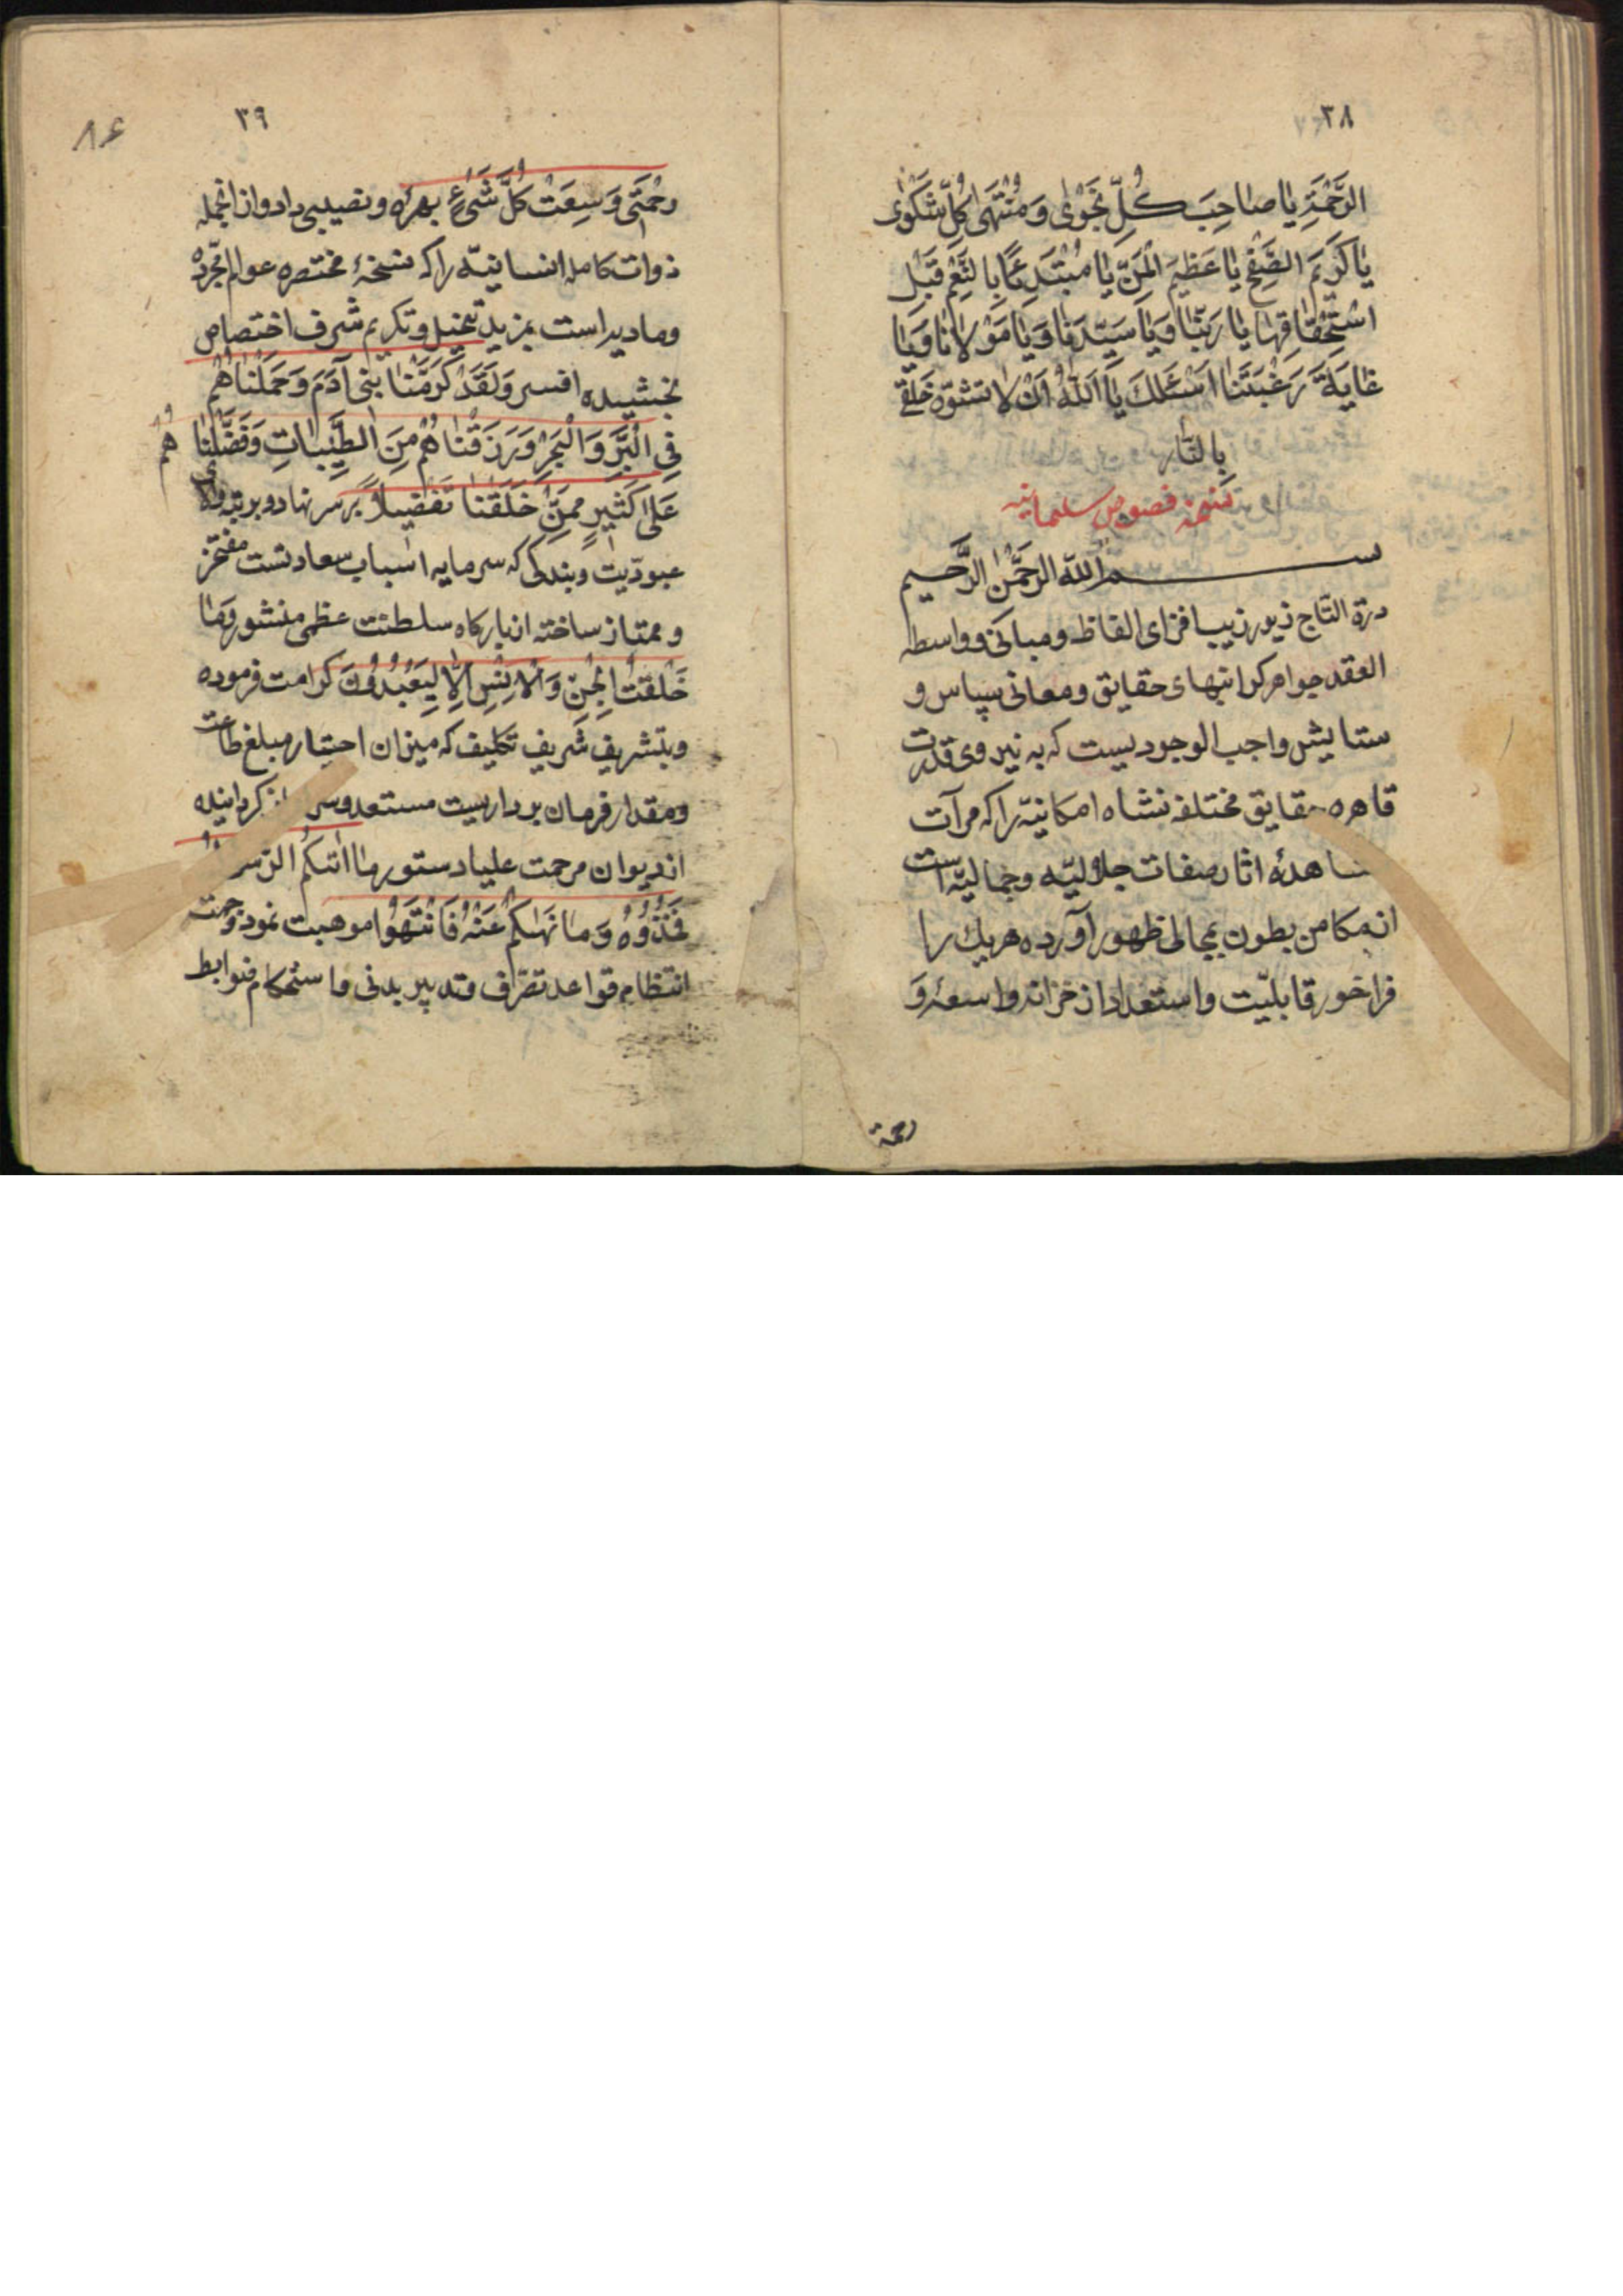 ٣٨
الرَّحْمَةِ يا صاحِبَ كُلِّ نَجْوىٰ وَ مُنْتَهىٰ كُلِّ شَكْوىٰ
يا كَريمَ الصَّفْحِ يا عَظيمَ الْمَنِّ يا مُبْتَدِئًا بِالنِّعَمِ قَبْلَ
اسْتِحْقاقِها يا رَبَّنا وَيا سَيِّدَنا وَيا مَوْلانا وَيا
غايَةَ رَغْبَتِنا اَسْئَلُكَ يا اَللّهُ اَنْ لا تشَوِّهَ خَلْقى
بِالنّار
نسخه فصوص سلیمانیه
بسم الله الرحمن الرحیم
درة التاج زیور زیب افزای الفاظ و مبانی و واسطه
العقد جواهر کرانبهای حقایق و معانی سپاس و
ستایش واجب الوجودیست که به نیروی قدرت
قاهره حقایق مختلفه نشاه امکانیّه را که مرآت
مشاهدهٔ اثار صفات جلالیّه و جمالیّه است
از مکامن بطون بمجالی ظهور آورده هر یك را
فراخور قابلیّت و استعداد از خزانه واسعهٔ وَ
رحمة
٣٩
٨۶
رحْمَتى وَسِعَتْ كُلَّ شَىْءٍ بهرهٔ و نصیبی داد و از انجمله
ذوات کامله انسانیّه را که نسخهٔ مختصره عوالم مجرّده
و مادیه است بمزید تبجیل و تکریم شرف اختصاص
بخشیده افسر وَلَقَدْ كَرَّمْنا بَنى آدَمَ وَحَمَلْناهُمْ
فِى الْبَرِّ وَالْبَحْرِ وَرَزَقْناهُمْ مِنَ الطَّيِّباتِ وَفَضَّلْنا هُمْ
عَلىٰ كَثيرٍ مِمَّنْ خَلَقْنا تَفْضيلاً بر سر نهاد و بر تبه والای
عبودیّت و بندکی که سرمایه اسباب سعادتست مفتخر
و ممتاز ساخته از بارکاه سلطنت عظمی منشور وَما
خَلَقْتُ الْجِنَّ وَالْاِنْسَ اِلّا لِيَعْبُدُونَ کرامت فرموده
و بتشریف شریف تکلیف که میزان اختبار مبلغ طاعت
و مقدار فرمان برداریست مستعد و سر کردانیده
از دیوان مرحمت علیا دستور ما اتٰیکُم الرّسول
فَخُذُوهُ وَما نَهٰىكُمْ عَنْهُ فَانْتَهُوا موهبت نمود و جهت
انتظام قواعد تصرّف و تدبیر بدنی و استحکام ضوابط